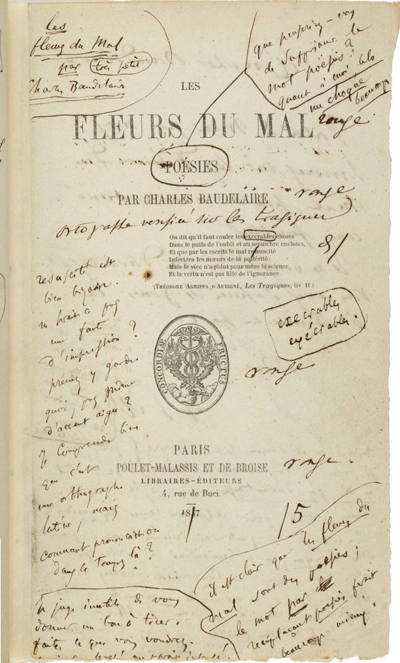 les
fleurs du Mal
par très petit
Charles Baudelaire
que pensez-vous
de supprimer le
mot poésies?
quant à moi cela
me choque
beaucoup
LES
FLEURS DU MAL
rouge.
POÉSIES
PAR CHARLES BAUDELAIRE
rouge
ortographe sur les tragiques
On dit qu'il faut couler les exécrables choses
Dans le puits de l'oubli et au sépulchre encloses,
Et que par les escrits le mal resuscité
Infectera les mœurs de la postérité;
Mais le vice n'a point pour mère la science,
Et la vertu n'est pas fille de l'ignorance
(THÉODORE AGRIPPA D'AUBIGNÉ, Les Tragiques, liv. II)
resuscité est
bien bizarre.
une faute
d'impression?
prenez y garde
quoi, pas même
d'accent aigu?
Je comprends bien
que c'est
une orthographe
latine, mais
comment prononçait-on
dans le temps là?
execrables
exécrables.
CONCORDIÆ FRUCTUS
rouge
PARIS
POULET-MALASSIS ET DE BROISE
LIBRAIRES-ÉDITEURS
4, rue de Buci.
rouge.
1857
5
il est clair que les fleurs du
mal sont des poésies;
le mot par
remplaçant poésies ferait
beaucoup mieux.
Je juge inutile de vous
donner un bon à tirer.
faites ce que vous voudrez.